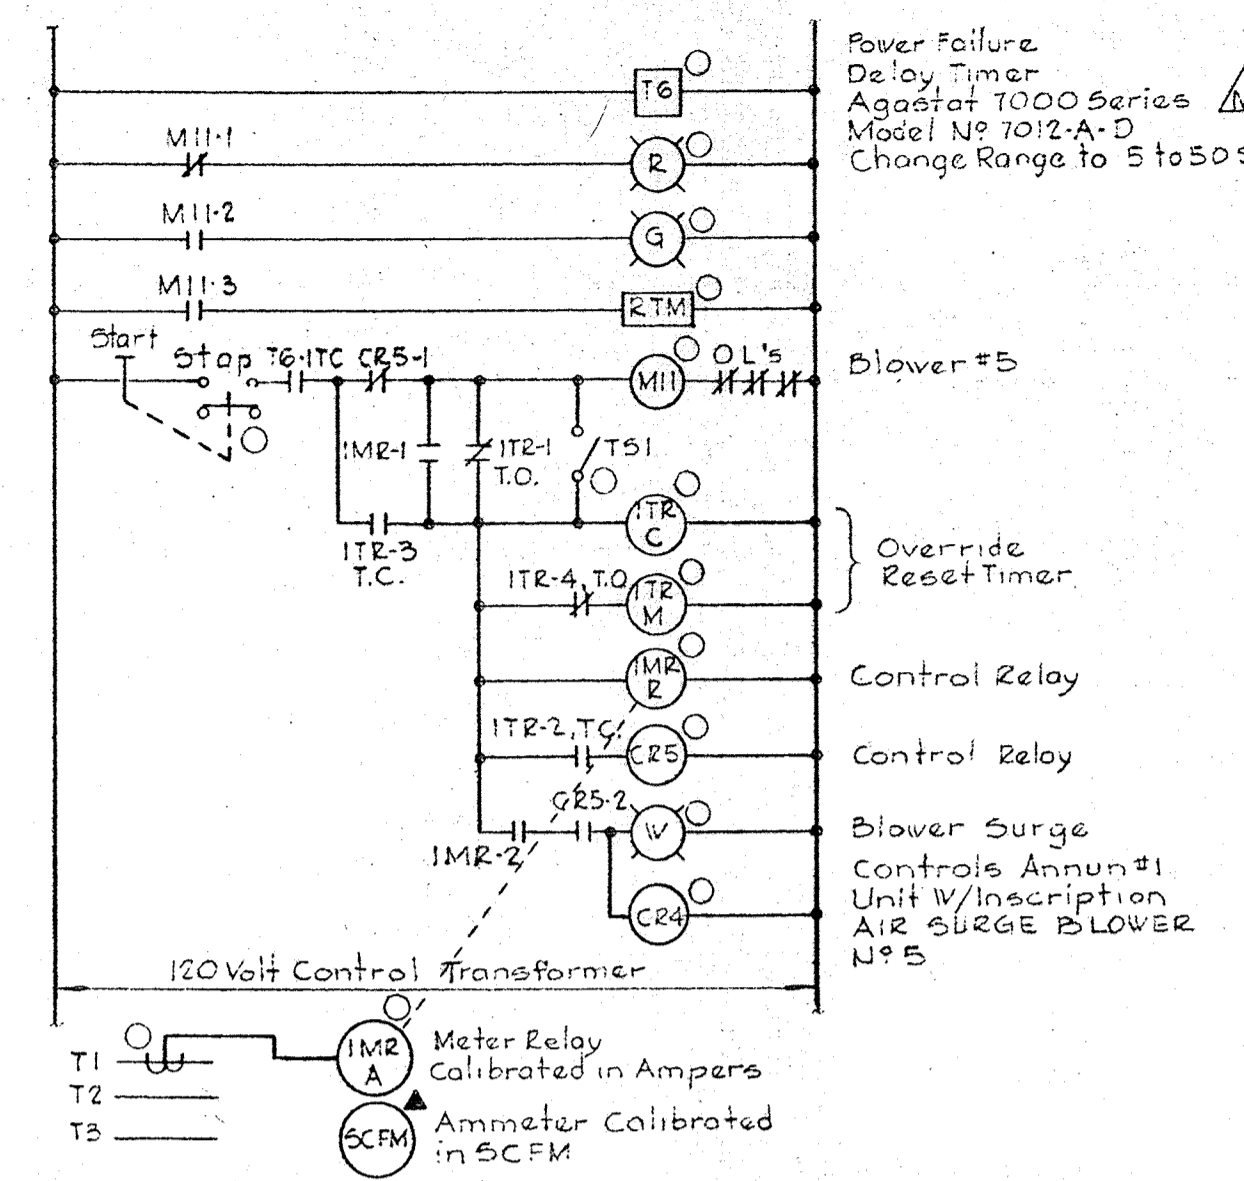 Power Failure
Delay Timer
Agastat 7000 Series
Model Nº 7012-A-D
Change Range to 5 to 50 S
T6
M11-1
R
M11-2
G
M11-3
RTM
Start
Stop
T6-1TC
CR5-1
M11
OL's
Blower #5
1MR-1
1TR-1
T.O.
TS1
1TR-3
T.C.
1TR
C
Override
Reset Timer
1TR-4, T.O.
1TR
M
1MR
R
Control Relay
1TR-2, T.C.
CR5
Control Relay
1MR-2
CR5-2
W
Blower Surge
Controls Annun #1
Unit W/Inscription
AIR SURGE BLOWER
Nº 5
CR4
120 Volt Control Transformer
T1
T2
T3
1MR
A
Meter Relay
Calibrated in Ampers
SCFM
Ammeter Calibrated
in SCFM